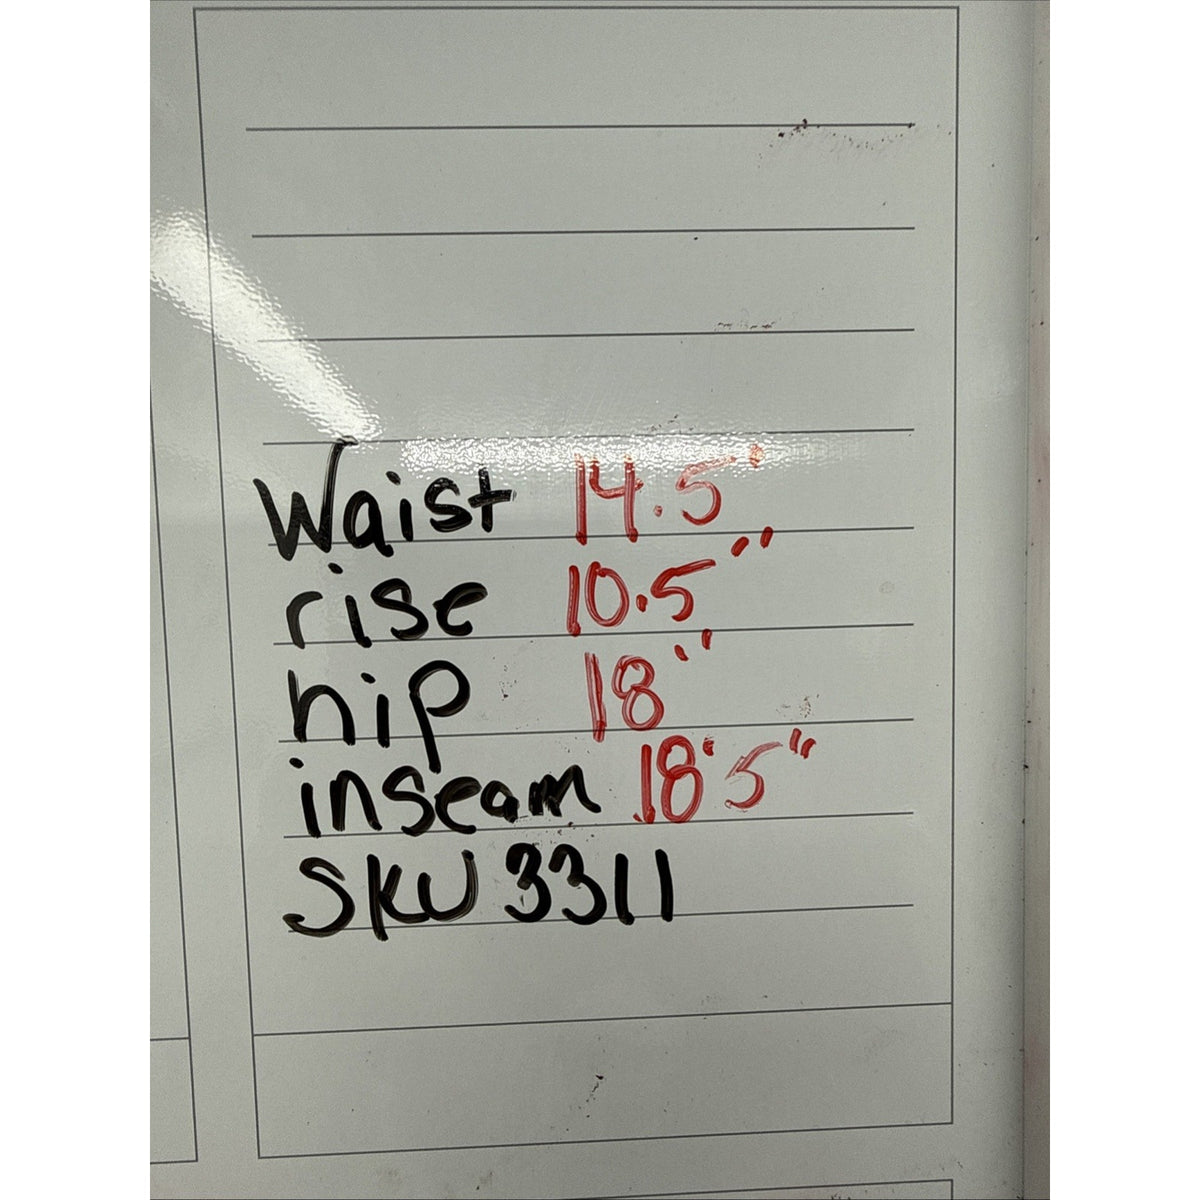 Waist 14.5"
rise 10.5"
hip 18"
inseam 18.5"
SKU 3311